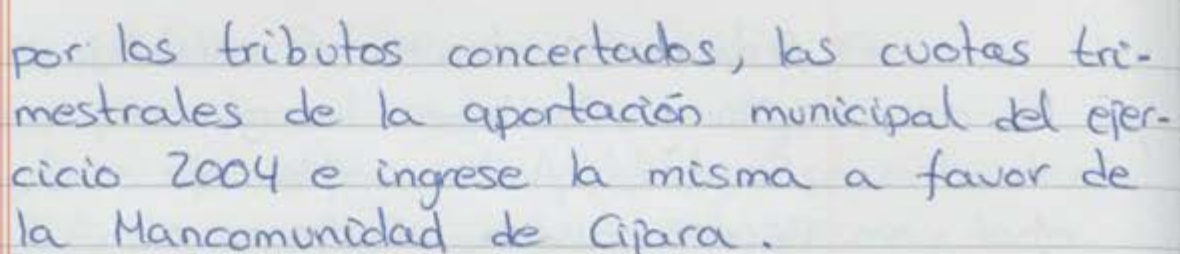 por los tributos concertados, las cuotas tri-
mestrales de la aportación municipal del ejer-
cicio 2004 e ingrese la misma a favor de
la Mancomunidad de Cijara.